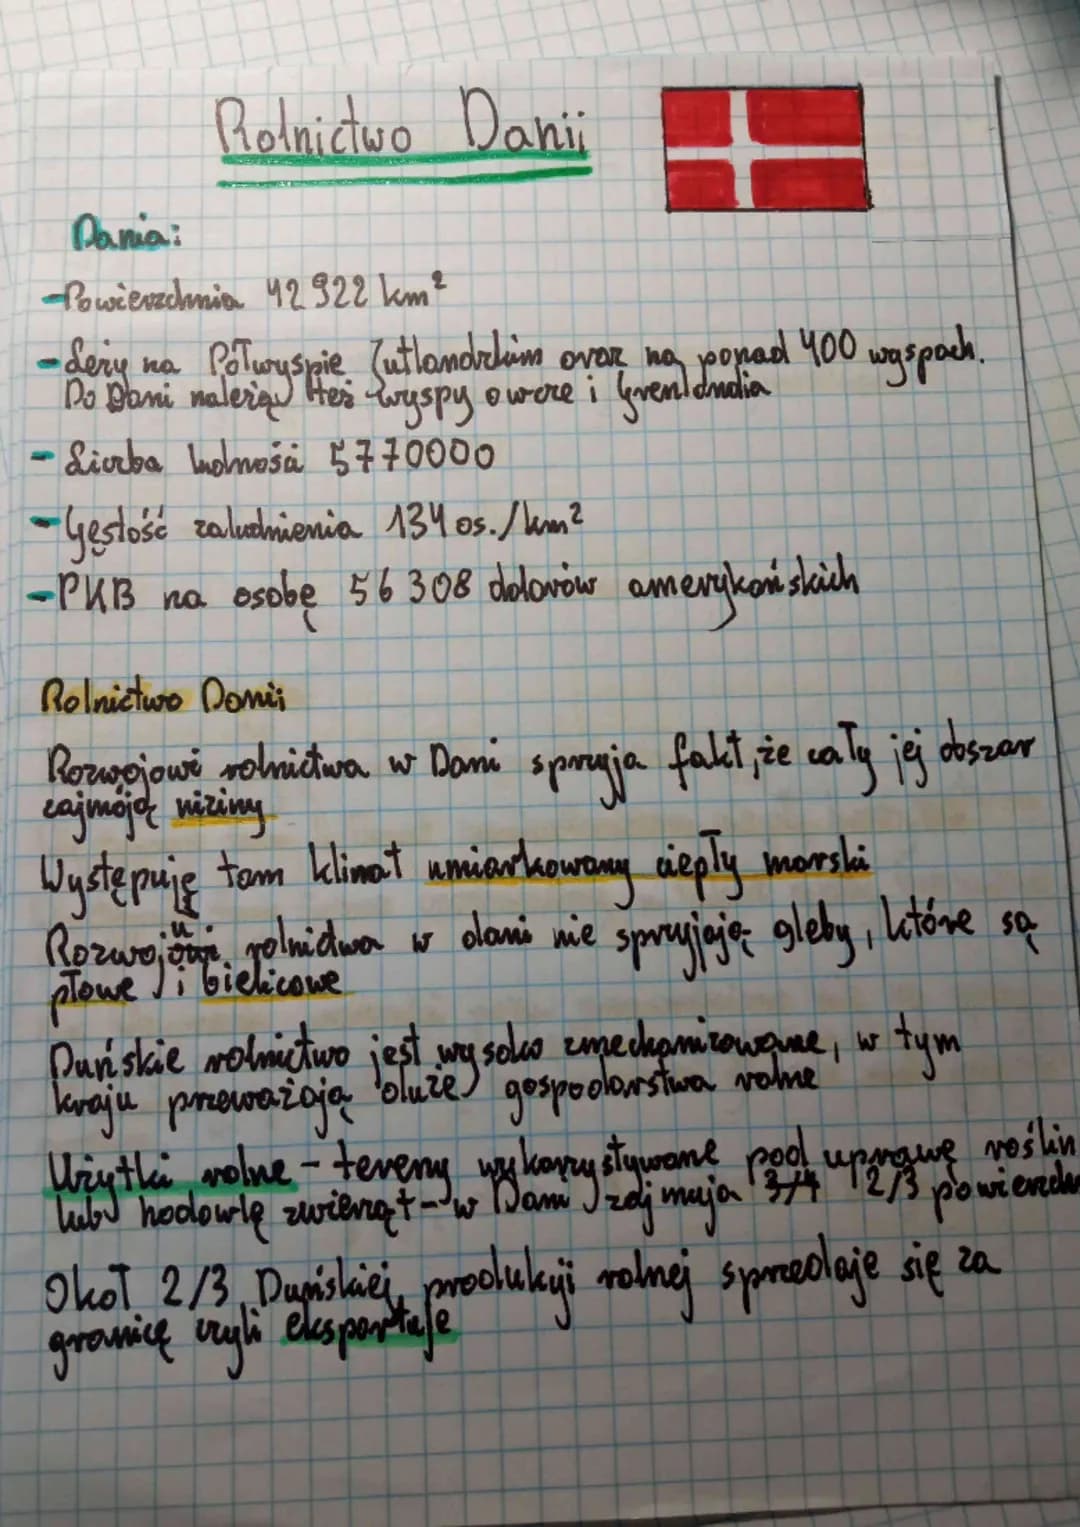 Rolnictwo Danii
Dania:
-Powierzchnia 42 922 km²
-Leży na Półwyspie Jutlandzkim oraz na ponad 400 wyspach.
Do Dani należą też wyspy owcze i Grenlandia
- Liczba ludności 5770000
-Gęstość zaludnienia 134 os./km²
-PKB na osobę 56 308 dolarów amerykańskich
Rolnictwo Danii
Rozwojowi rolnictwa w Dani sprzyja fakt, że cały jej obszar
zajmóją niziny
Występuję tam klimat umiarkowany ciepły morski
Rozwoju rolnictwa w dani nie sprzyjają gleby, które są
płowe i bielicowe
Duńskie rolnictwo jest wysoko zmechanizowane, w tym
kraju przeważają duże gospodarstwa rolne
Użytki rolne - tereny wykorzystywane pod uprawę roślin
lub hodowlę zwierząt - w Dani zajmuja 3/4 2/3 powierzch
Okoł 2/3 Duńskiej produkcji rolnej sprzedaje się za
granicę czyli eksportuje